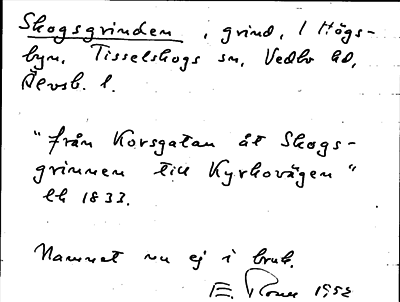 Skogsgrinden, grind, i Högs-
byn, Tisselskogs sn, Vedbo hd,
Älvsb. l.
"från Korsgatan åt Skogs-
grinnen till Kyrkovägen"
lh 1833.
Namnet nu ej i bruk.
E. 1952